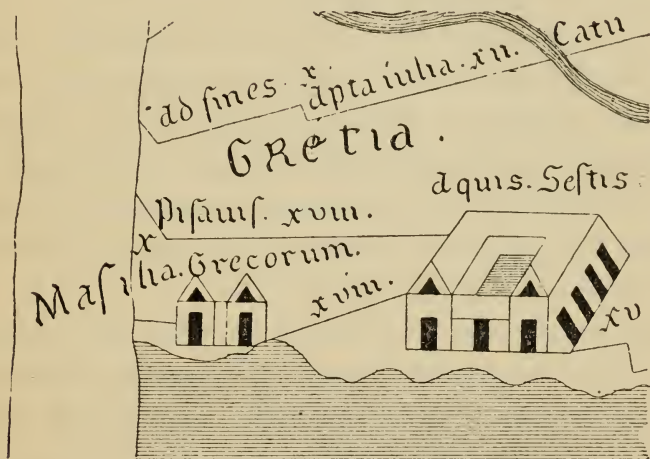 Catu
ad fines. x.
apta iulia. xii.
GReTIa.
aquis. Seſtis
Piſauiſ. xviii.
x
Maſilia. Grecorum.
xviii.
xv